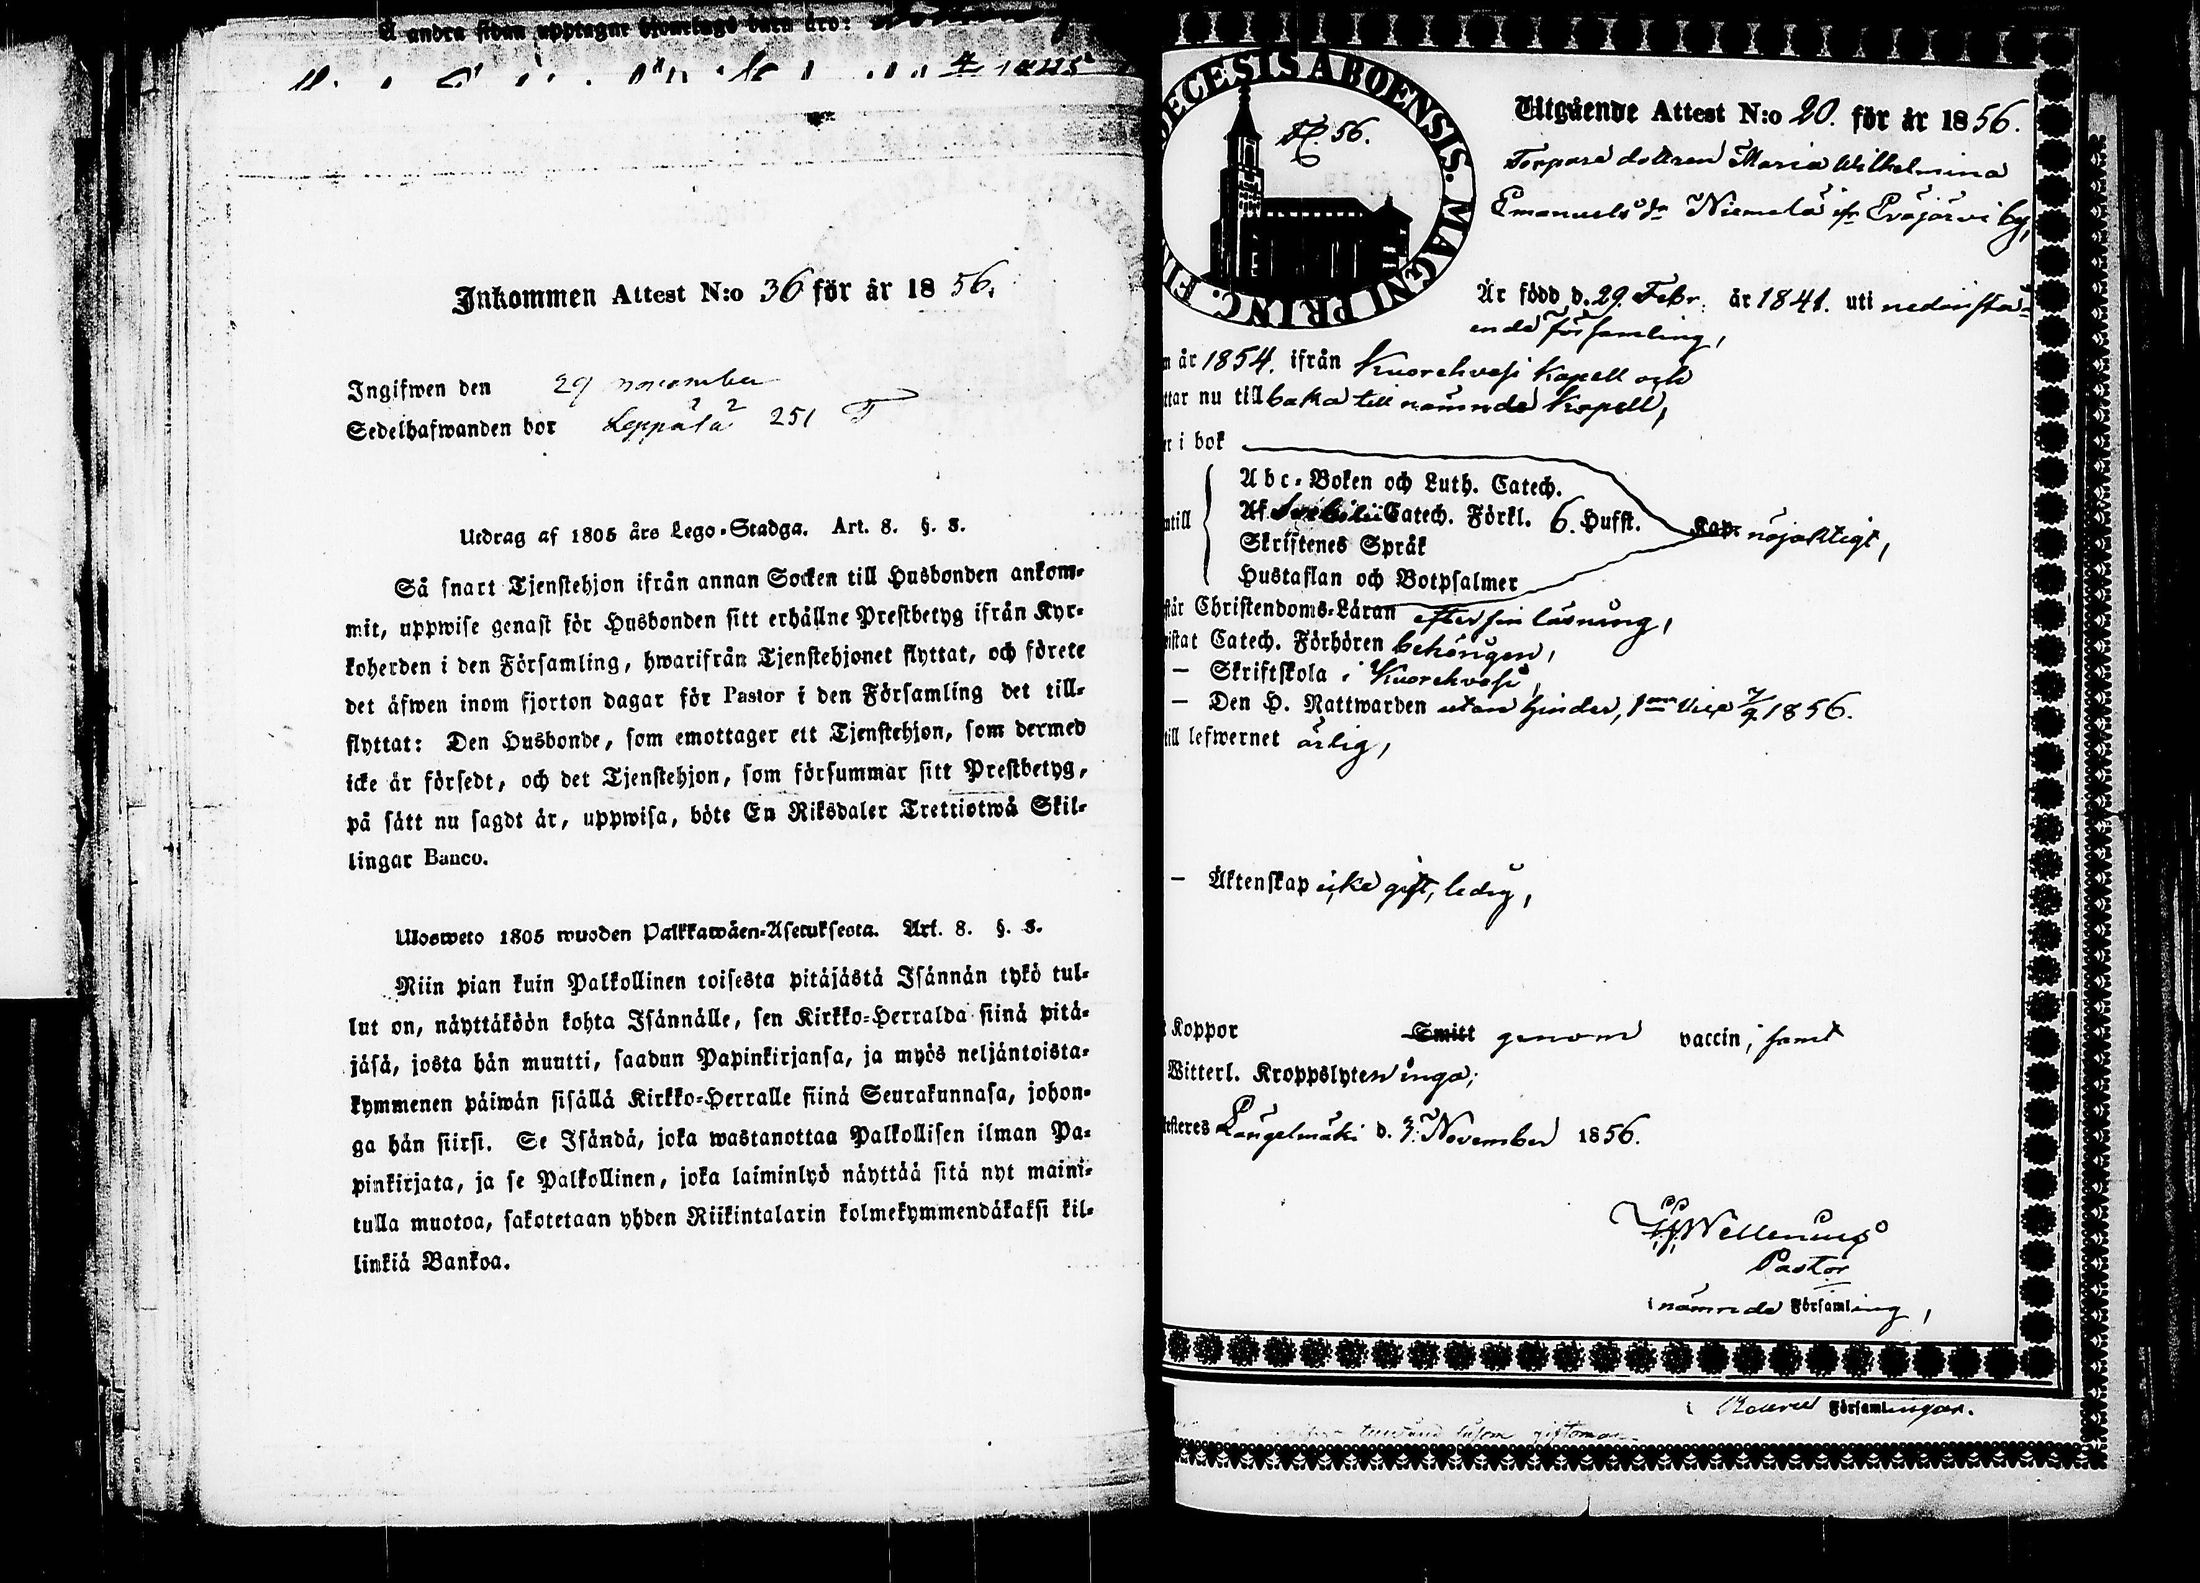 å andra sidan upptagne
4/ 1845
Inkommen Attest N:o 36 för år 1856.
Ingifwen den 29 november
Sedelhafwanden bor Leppäsä 251
Utdrag af 1805 års Lego-Stadga. Art. 8. §. 3.
Så snart Tjenstehjon ifrån annan Socken till Husbonden ankom-
mit, uppwise genast för Husbonden sitt erhållne Prestbetyg ifrån Kyr-
koherden i den Församling, hwarifrån Tjenstehjonet flyttat, och förete
det äfwen inom fjorton dagar för Pastor i den Församling det till-
flyttat: Den Husbonde, som emottager ett Tjenstehjon, som dermed
icke är försedt, och det Tjenstehjon, som försummar sitt Prestbetyg,
på sätt nu sagdt är, uppwisa, böte En Riksdaler Trettiotwå Skil-
lingar Banco.
Ulosweto 1805 wuoden Palkkawäen-Asetuksesta. Art. 8. §. 3.
Niin pian kuin Palkollinen toisesta pitäjästä Isännän tykö tul-
lut on, näyttäköön kohta Isännälle, sen Kirkko-Herralda siinä pitä-
jäsä, josta hän muutti, saadun Papinkirjansa, ja myös neljäntoista-
kymmenen päiwän sisällä Kirkko-Herralle siinä Seurakunnasa, johon-
ga hän siirsi. Se Isändä, joka wastanottaa Palkollisen ilman Pa-
pinkirjata, ja se Palkollinen, joka laiminlyö näyttää sitä nyt maini-
tulla muotoa, sakotetaan yhden Riikintalarin kolmekymmendäkaksi kil-
linkiä Bankoa.
ECESIS ABOENSIS. MAGNI PRINC. FI
56.
Utgående Attest N:o 20. för år 1856.
Torpare dottren Maria Wilhelmina
Emanuelsdr Niemelä ifr Eräjärvi by,
Är född d. 29. Febr. år 1841. uti nedanstå-
ende församling,
år 1854. ifrån Kuorehvesi Kapell och
ttar nu tillbaka till nämnde Kapell,
i bok
Abc-Boken och Luth. Catech.
ntill Af Svebilii Catech. Förkl. 6. Hufst. Kap. nöjaktigt,
Skriftenes Språk
Hustaflan och Botpsalmer
står Christendoms-Läran efter sin läsning,
istat Catech. Förhören behörigen,
— Skriftskola i Kuorehvesi,
— Den H. Nattwarden utan hinder, 1sta 7/9 1856.
till lefwernet ärlig,
— Äktenskap icke gift, ledig,
Koppor Smitt genom vaccin, samt
Witterl. Kroppslyten inga;
testeres Längelmäki d. 3. November 1856.
Wellenius
Pastor
i nämnde Församling,
i Församlingar.